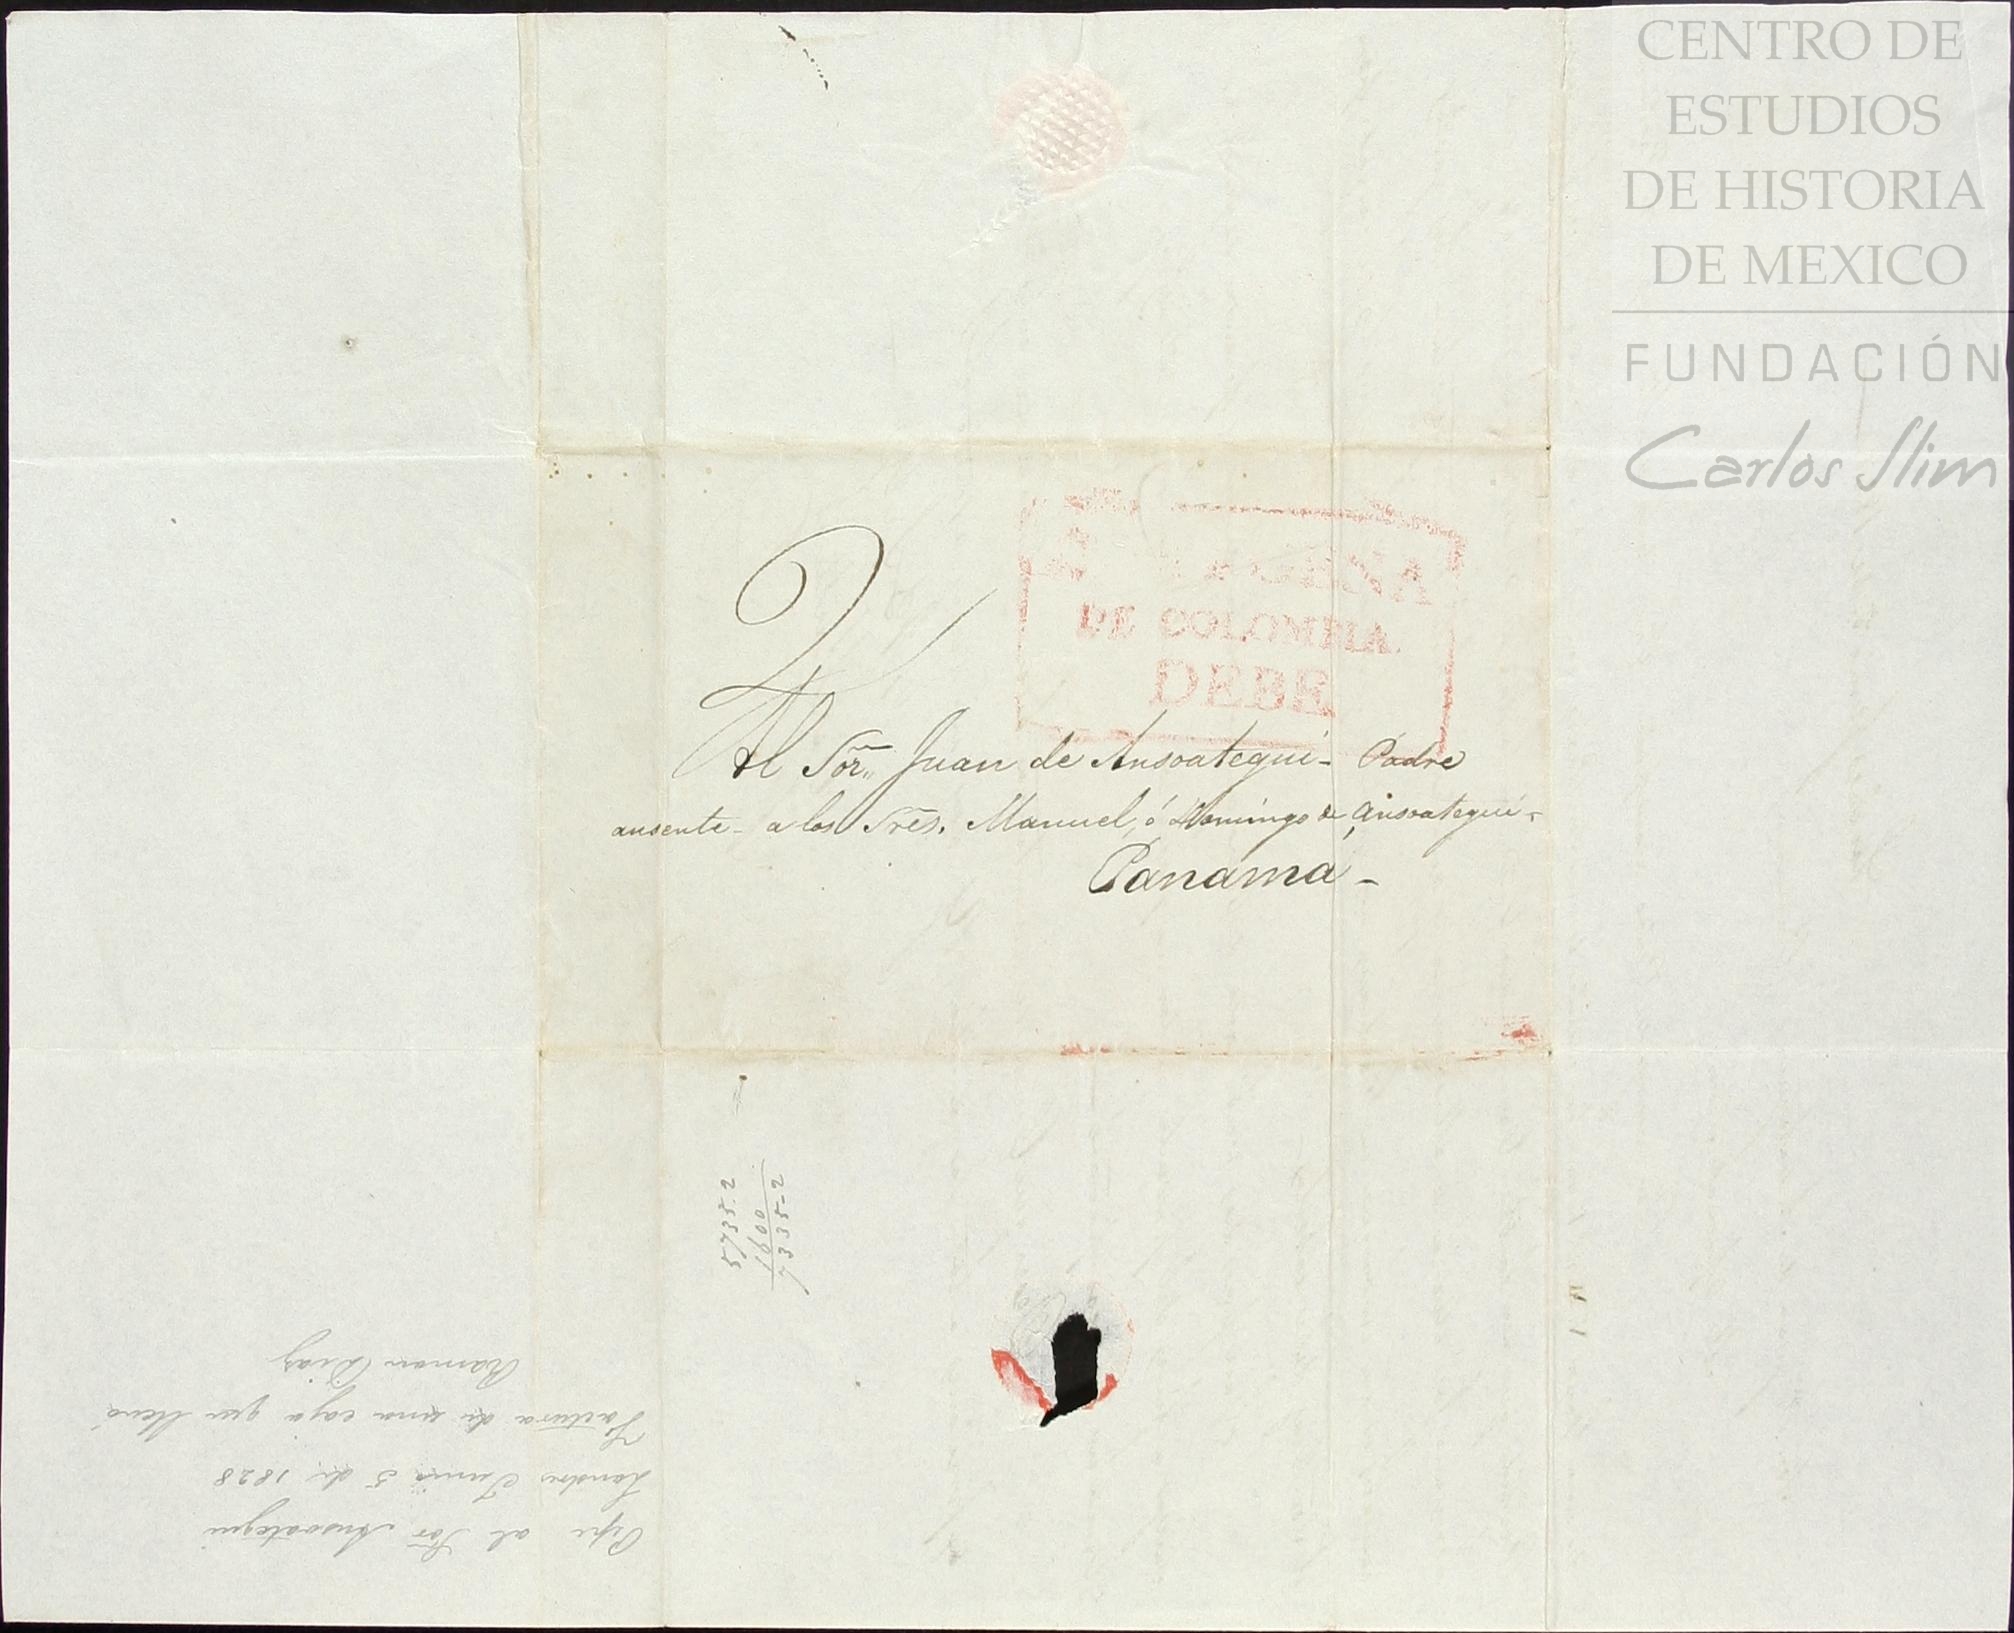 CENTRO DE
ESTUDIOS
DE HISTORIA
DE MEXICO
FUNDACIÓN
Carlos Slim
TAGENA
DE COLOMBIA.
DEBE
Al Sor. Juan de Ansoategui - Padre
ausente - a los Sres. Manuel, ó Domingo de Ansoategui -
Panamá -
5735.2
1600
7335-2
Pepe al Sor Ansoategui
Londres Junio 5 de 1828
Factura de una caja que lleva
Ramon Diaz